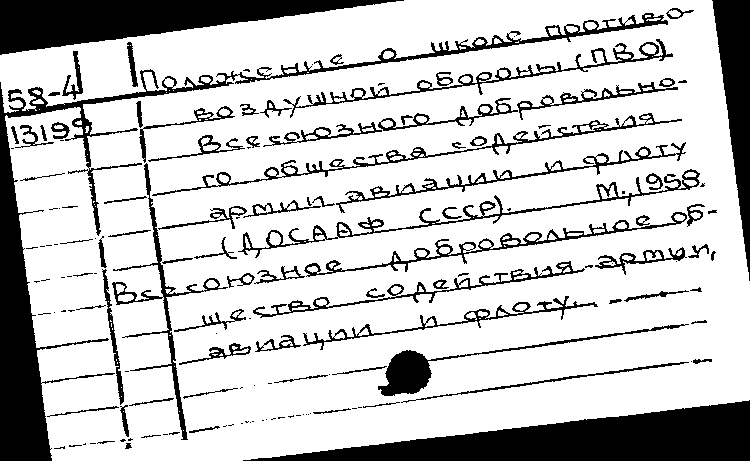 58-4 Положение о школе противо-
13199 воздушной обороны (ПВО)
Всесоюзного добровольно-
го общества содействия
армии, авиации и флоту
(ДОСААФ СССР). М., 1958.
Всесоюзное добровольное об-
щество содействия армии,
авиации и флоту.